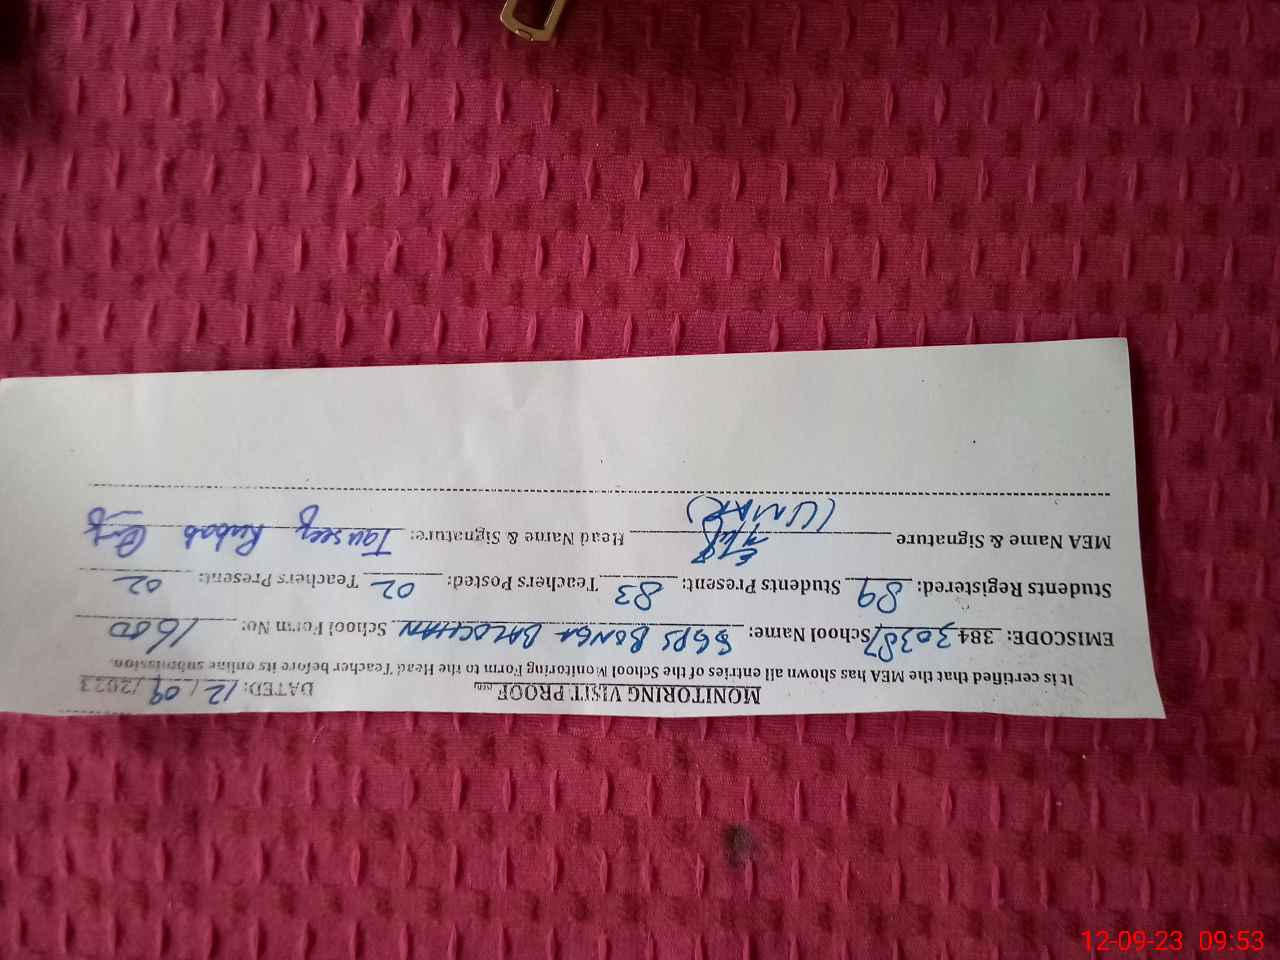 MONITORING VISIT PROOF DATED: 12/09/2023
It is certified that the MEA has shown all entries of the School Monitoring Form to the Head Teacher before its online submission.
EMISCODE: 384 30387 School Name: GGPS BONGA BALOCHAN School Form No: 1600
Students Registered: 89 Students Present: 83 Teachers Posted: 02 Teachers Present: 02
MEA Name & Signature (UMAR) Head Name & Signature: Tauseeq Rubab
12-09-23 09:53